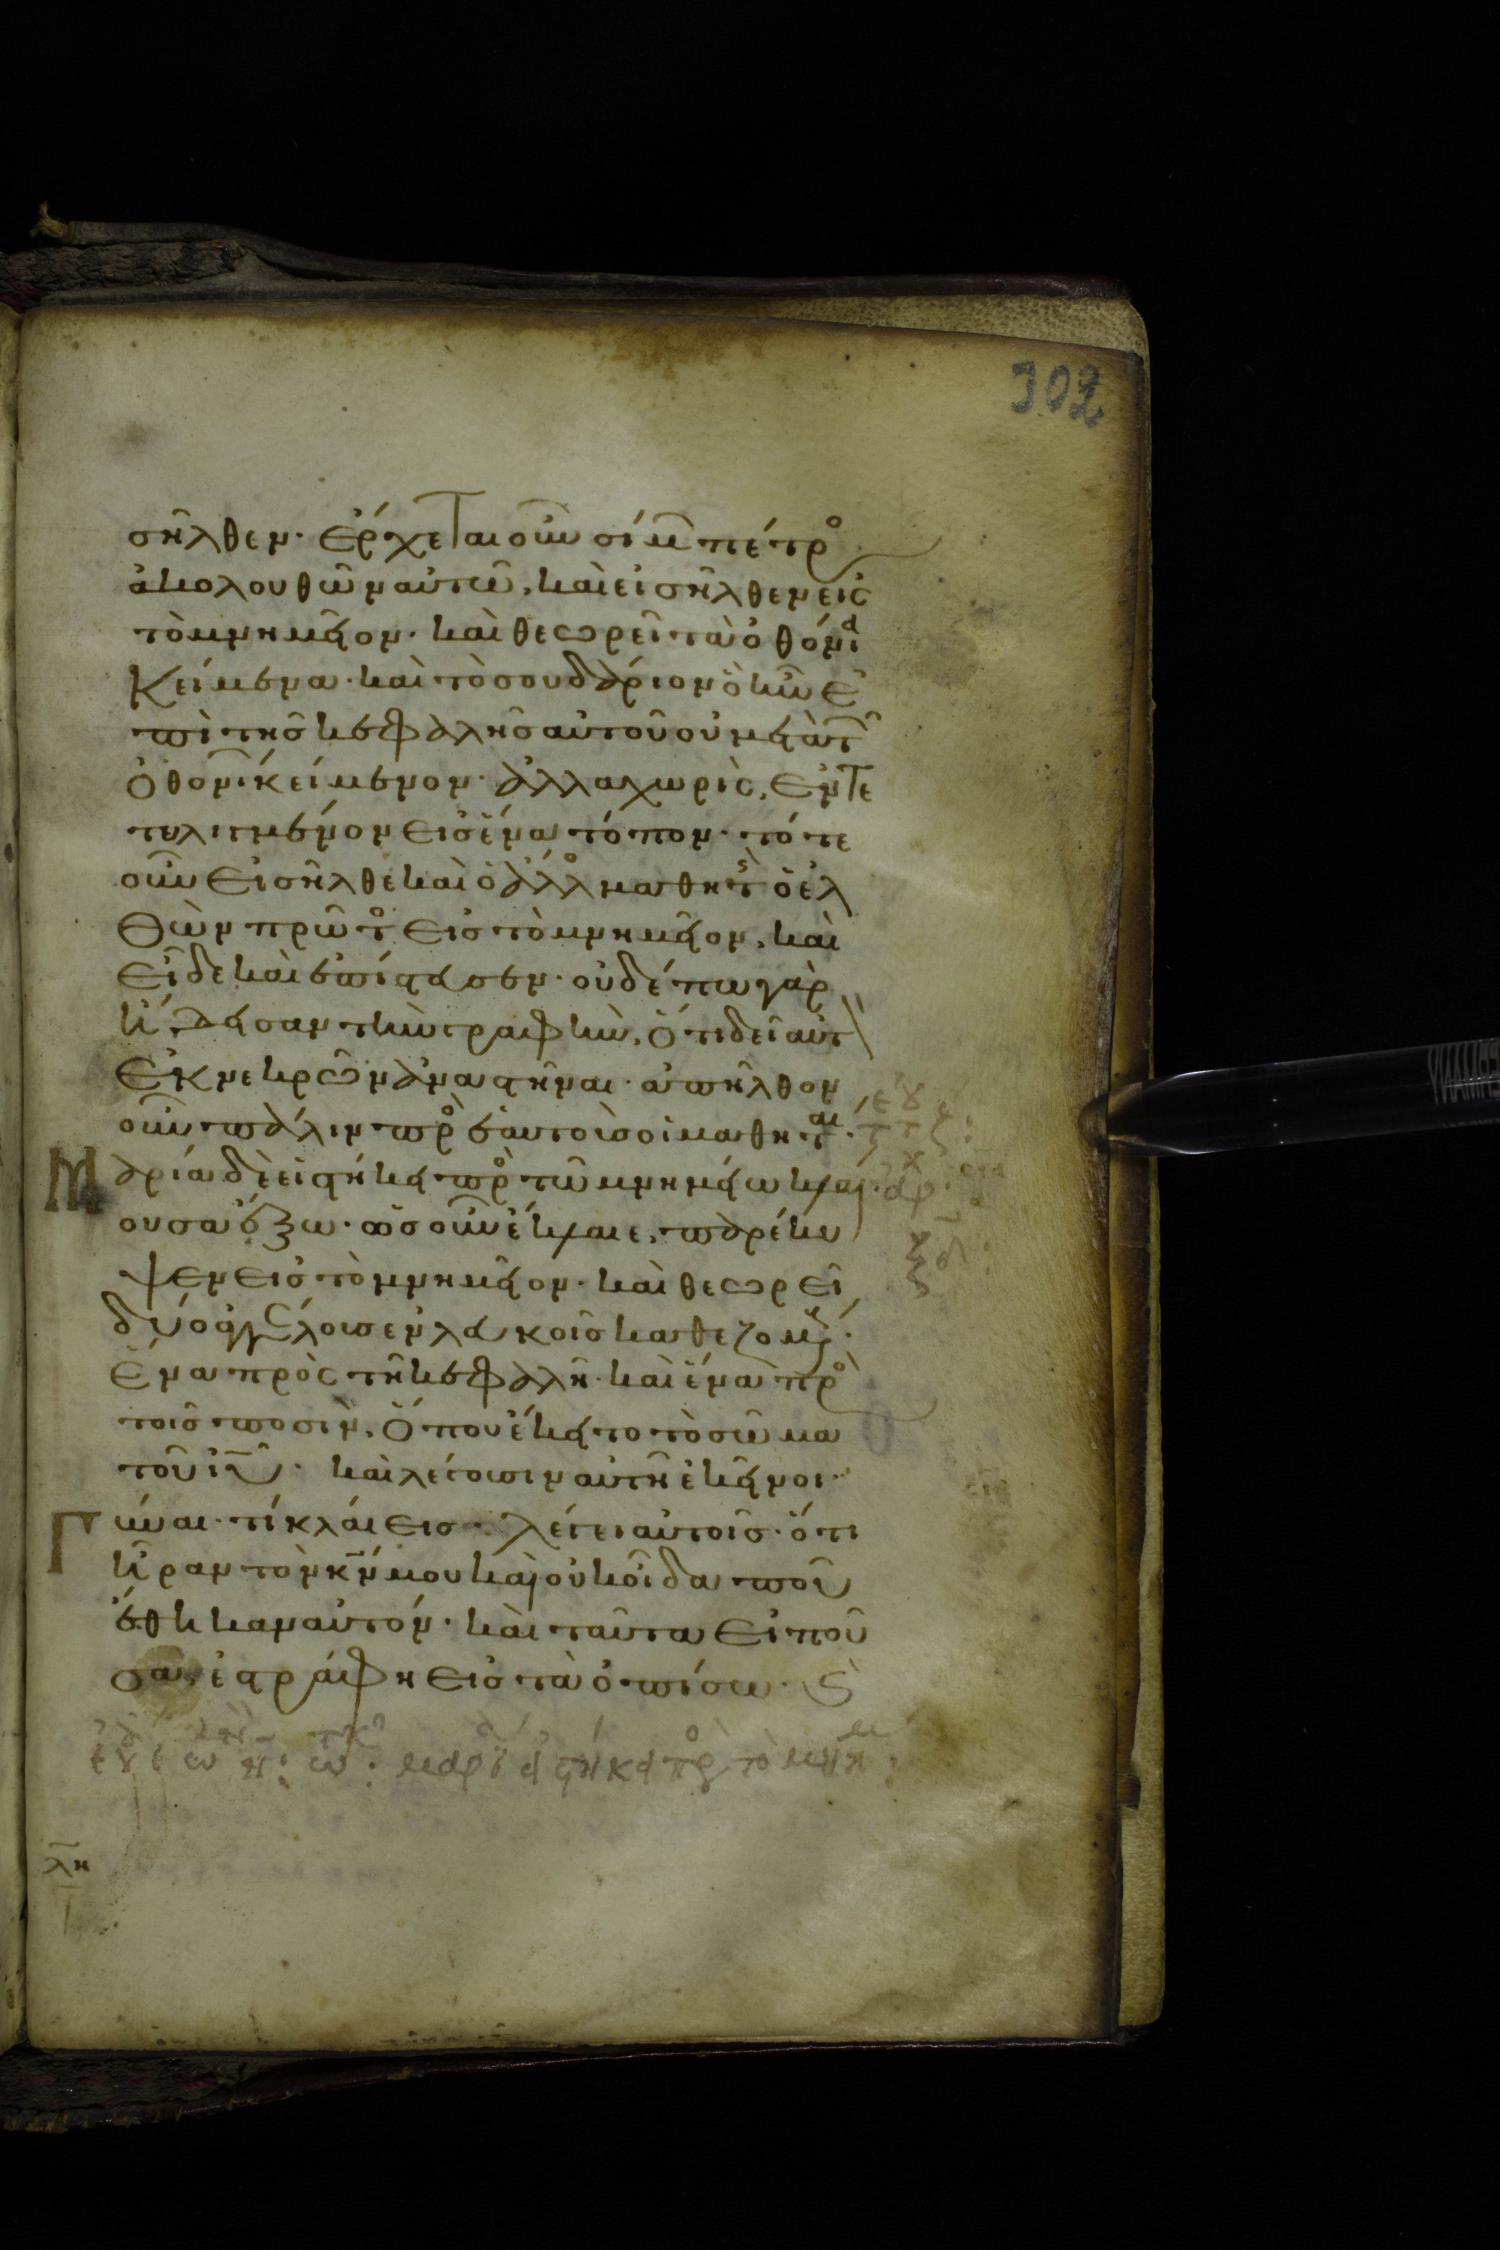 302
σῆλθεν· ἔρχεται οὖν σίμ πέτρο
ἀκολουθῶν αὐτῶ, καὶ εἰσῆλθεν εἰς
τὸ μνημεῖον· καὶ θεωρεῖ τὰ ὀθόνια
κείμενα· καὶ τὸ σουδάριον ὃ ἦν ἐ
πὶ τῆς κεφαλῆς αὐτοῦ οὐ μετὰ τ
ὀθον κείμενον· ἀλλα χωρὶς, ἐντε
τυλιγμένον εἰς ἕνα τόπον· τότε
οὖν εἰσῆλθε καὶ ὁ ἄλλο μαθητὴς ὁ ἐλ
θὼν πρῶτο εἰς τὸ μνημεῖον, καὶ
εἶδε καὶ ἐπίστευσεν· οὐδέπω γὰρ
ἤδεισαν τὴν γραφὴν, ὅτι δεῖ αὐτ
ἐκ νεκρῶν ἀναστῆναι· ἀπῆλθον
οὖν πάλιν πρὸ ἑαυτοὺς οἱ μαθηταὶ·
Μαρία δὲ εἱστήκει πρὸ τῶ μνημείω κλαί
ουσα ἔξω· ὡς οὖν ἔκλαιε, παρέκυ
ψεν εἰς τὸ μνημεῖον· καὶ θεωρεῖ
δύο ἀγγέλους ἐν λευκοῖς καθεζομέν·
ἕνα πρὸς τῆ κεφαλῆ· καὶ ἕνα πρὸ
τοῖς ποσὶν, ὅπου ἔκειτο τὸ σῶμα
τοῦ ἰυ· καὶ λέγουσιν αὐτῆ ἐκεῖνοι·
Γύναι· τί κλαίεις· λέγει αὐτοῖς· ὅτι
ἦραν τὸν κν μου καὶ οὐκ οἶδα ποῦ
ἔθηκαν αὐτόν· καὶ ταῦτα εἰποῦ
σα, ἐστράφη εἰς τὰ ὀπίσω·
μαρί εἱστήκει πρ τὸ μνημ
λη